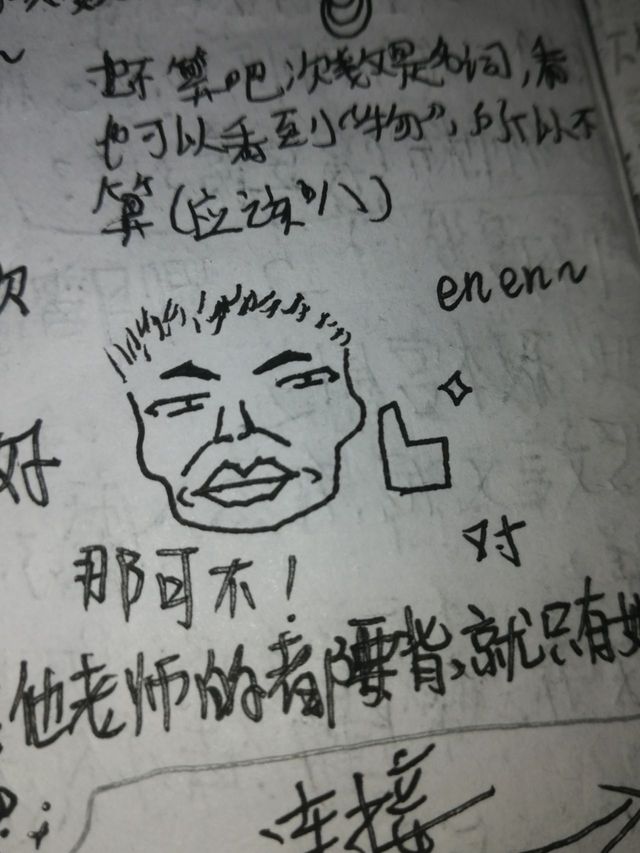 也不算吧次数是名词,看
也可以看到"物",所以不
算(应该叭)
次
enen~
好
那可不!
对
他老师的都要背,就只有
连接